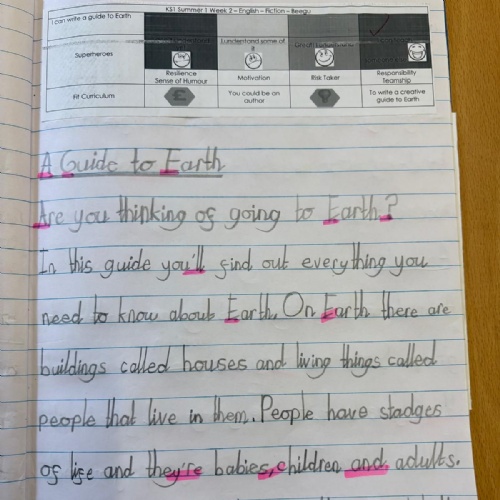 KS1 Summer 1 Week 2 – English – Fiction – Beegu
I can write a guide to Earth
I understand some of it
Superheroes
Resilience
Sense of Humour
Motivation
Risk Taker
Responsibility
Teamship
Fit Curriculum
£
You could be an author
To write a creative guide to Earth
A Guide to Earth
Are you thinking of going to Earth?
In this guide you'll find out everything you
need to know about Earth. On Earth there are
buildings called houses and living things called
people that live in them. People have stadges
of life and they're babies, children and adults.